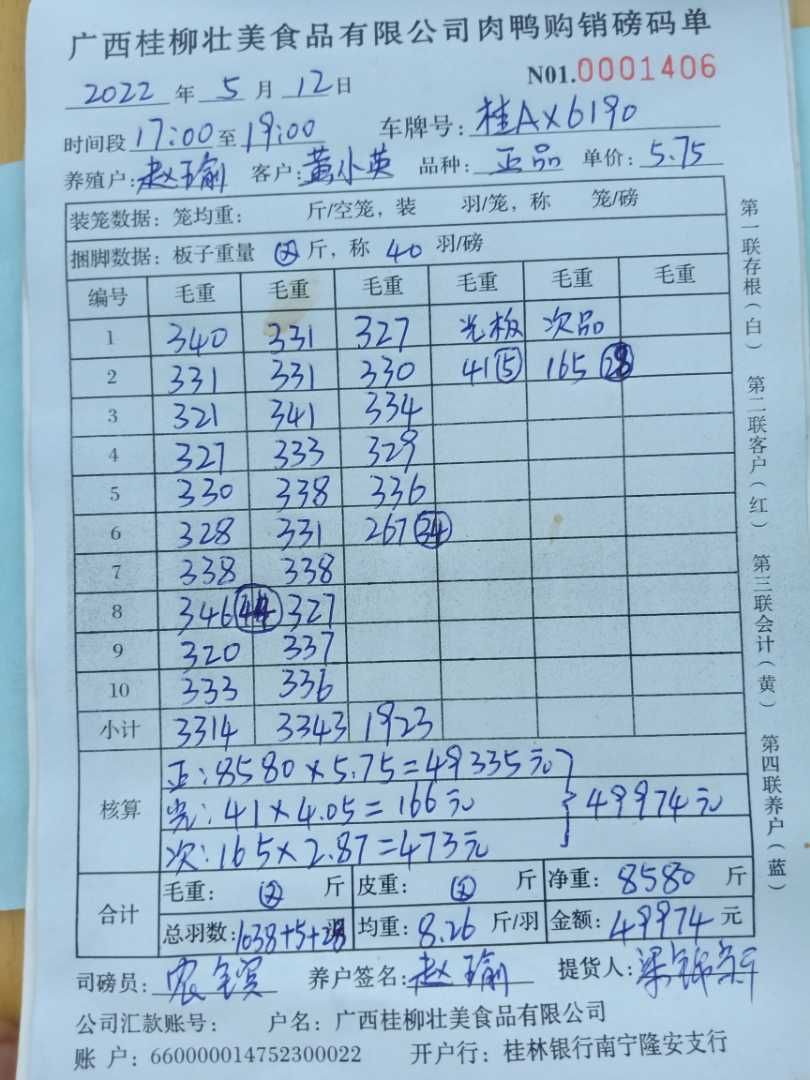 广西桂柳壮美食品有限公司肉鸭购销磅码单
2022 年 5 月 12 日 N01.0001406
时间段 17:00 至 19:00 车牌号: 桂AX6190
养殖户: 赵瑜 客户: 黄小英 品种: 正品 单价: 5.75
装笼数据: 笼均重: 斤/空笼, 装 羽/笼, 称 笼/磅
捆脚数据: 板子重量 斤, 称 40 羽/磅
编号 毛重 毛重 毛重 毛重 毛重 毛重
1 340 331 327 光板 次品
2 331 331 330 41⑤ 165㉘
3 321 341 334
4 327 333 329
5 330 338 336
6 328 331 267㉞
7 338 338
8 346㊹ 327
9 320 337
10 333 336
小计 3314 3343 1923
核算
正:8580×5.75=49335元
光:41×4.05=166元
次:165×2.87=473元
}49974元
合计
毛重: 斤 皮重: 斤 净重: 8580 斤
总羽数:1038+5+28 均重: 8.26 斤/羽 金额: 49974 元
司磅员: 养户签名: 赵瑜 提货人:
公司汇款账号: 户名:广西桂柳壮美食品有限公司
账 户:660000014752300022 开户行:桂林银行南宁隆安支行
第一联存根(白) 第二联客户(红) 第三联会计(黄) 第四联养户(蓝)